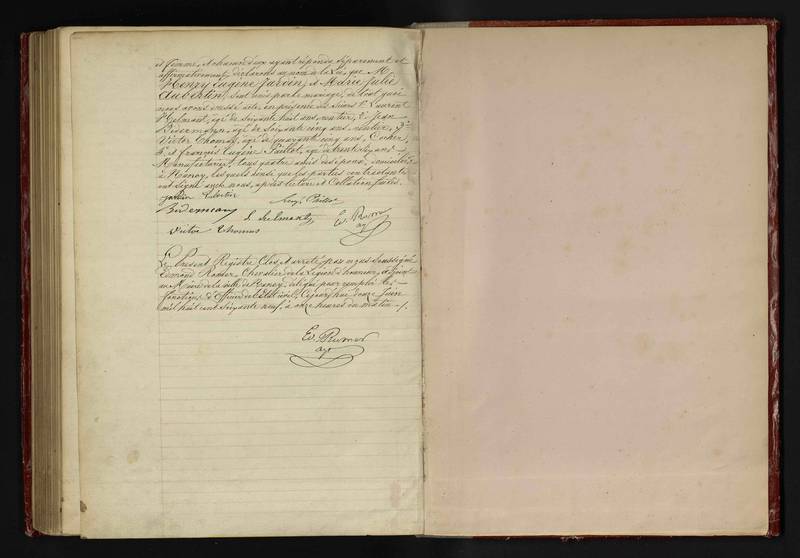 et femme, et chacun d'eux ayant répondu séparément et
affirmativement, déclarons au nom de la Loi, que M.
Henry Eugène Jardin, et Marie Julie
Aubertin, sont unis par le mariage, de tout quoi
nous avons dressé acte en présence des Sieurs 1° Laurent
Helmant, agé de soixante huit ans, rentier, 2° Jean
Bidermann, agé de soixante cinq ans, rentier, 3°
Victor Thomas, agé de quarante cinq ans, Cocher,
4° et François Eugène Paillot, agé de trente ans
Manufacturier, tous quatre amis des époux, domiciliés
à Nancy, lesquels ainsi que les parties contractantes
ont signé avec nous, après lecture et Collation faites.
Jardin
Bidermann
Victor Thomas
Le Présent Registre Clos et arrêté par nous soussigné
Edmond Chevalier de la Légion d'honneur, adjoint
au Maire de la ville de Nancy, délégué pour remplir les
fonctions d'Officier de l'Etat civil, Cejourd'hui douze Juin
mil huit cent soixante neuf, à onze heures du matin